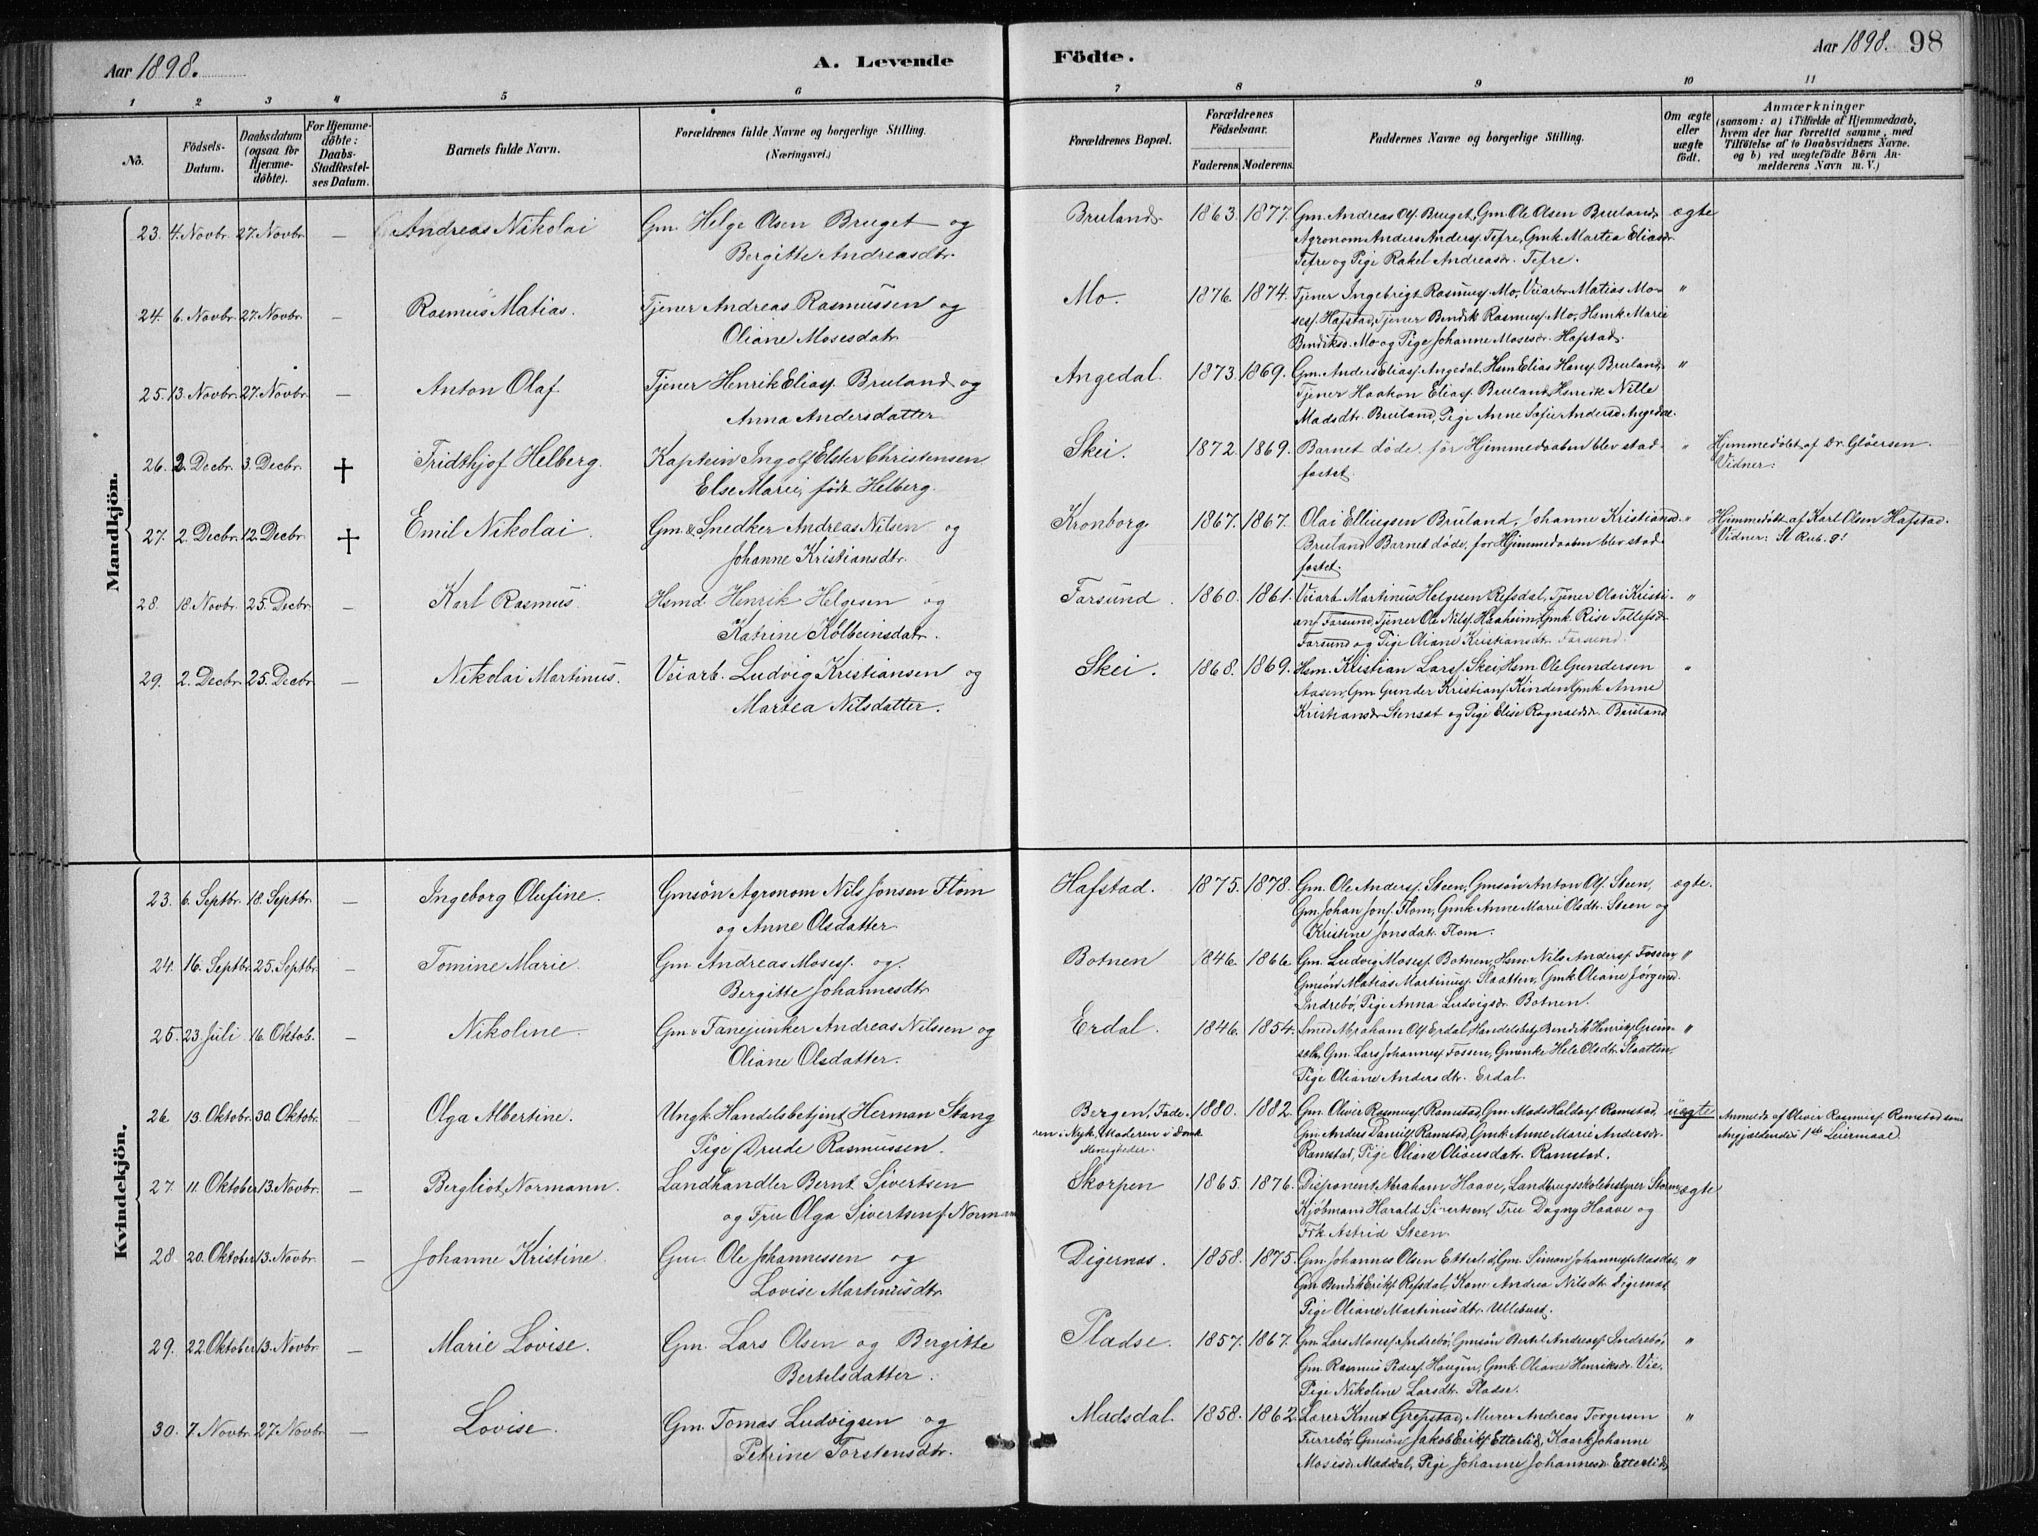 Aar 1898. A. Levende Fødte. Aar 1898. 98
1 2 3 4 5 6 7 8 9 10 11
No. Fødsels-Datum. Daabsdatum (ogsaa for Hjemmedöbte). For Hjemmedöbte: Daabs-Stadfæstelses Datum. Barnets fulde Navn. Forældrenes fulde Navne og borgerlige Stilling. (Næringsvei.) Forældrenes Bopæl. Forældrenes Födselsaar. Faderens. Moderens. Faddernes Navne og borgerlige Stilling. Om ægte eller uægte født. Anmærkninger (saasom: a) i Tilfælde af Hjemmedaab, hvem der har forrettet samme, med Tilföielse af to Daabsvidners Navne. og b) ved uægtefödte Börn Anmelderens Navn m. V.)
Mandkjön.
23. 4. Novbr. 27. Novbr. — Andreas Nikolai Gm. Helge Olsen Bruget og Bruland 1863. 1877. Gm. Andreas Ols. Bruget, Gm. Ole Olsen Bruland, ægte
Bergitte Andreasdtr. Agronom Anders Anders. Tefre, Gmk. Martea Eliasdr.
Tefre og Pige Rakel Andreasdr. Tefre.
24. 6. Novbr. 27. Novbr. — Rasmus Matias. Tjener Andreas Rasmussen og Mo. 1876. 1874. Tjener Ingebrigt Rasmus. Mo, Veiarb. Matias Mo- "
Oliane Mosesdatr. ses. Hafstad, Tjener Bendik Rasmus. Mo, Hsmk. Marie
Bendiksd. Mo og Pige Johanne Mosesdr. Hafstad.
25. 13. Novbr. 27. Novbr. — Anton Olaf. Tjener Henrik Elias. Bruland og Angedal. 1873. 1869. Gm. Anders Elias. Angedal, Hsm. Elias Hans. Bruland, "
Anna Andersdatter Tjener Haakon Elias. Bruland, Nille
Madsdtr. Bruland, Pige Anne Sofie Andersd. Angedal.
26. 2. Decbr. 3. Decbr. † Fridthjof Helberg. Kaptein Ingolf Elster Christensen Skei. 1872. 1869. Barnet døde før Hjemmedaaben blev stad- " Hjemmedøbt af Dr. Gløersen.
Else Marie, født Helberg. fæstet. Vidner:
27. 2. Decbr. 12. Decbr † Emil Nikolai. Gm. & Snedker Andreas Nilsen og Kronborg 1867. 1867. Olai Ellingsen Bruland, Johanne Kristiansd. " Hjemmedøbt af Karl Olsen Hafstad.
Johanne Kristiansdtr. Bruland. Barnet døde, før Hjemmedaaben blev stad- Vidner: Se Rub. 9!
fæstet.
28. 18. Novbr. 25. Decbr — Karl Rasmus. Hsmd. Henrik Helgesen og Farsund. 1860. 1861. Veiarb. Martinus Helgesen Refsdal, Tjener Olai Kristi- "
Katrine Kolbeinsdatr. ans. Farsund, Tjener Ole Nils. Haaheim, Gmk. Rise Tollefsdr.
Farsund og Pige Oliane Kristiansdtr. Farsund.
29. 2. Decbr. 25. Decbr — Nikolai Martinus. Veiarb. Ludvig Kristiansen og Skei. 1868. 1869. Hsm. Kristian Lars. Skei, Hsm. Ole Gundersen "
Martea Nilsdatter. Aasen, Gm. Gunder Kristians. Kinden, Gmk. Anne
Kristiansdr. Stensæt og Pige Elise Rognaldsdr. Bruland
Kvindekjön.
23. 6. Septbr. 18. Septbr. — Ingeborg Olufine. Gmsøn Agronom Nils Jonsen Flom Hafstad. 1875. 1878. Gm. Ole Anders. Steen, Gmsøn Anton Ols. Steen, ægte.
og Anne Olsdatter. Gm. Johan Jons. Flom, Gmk. Anne Marie Olsdtr. Steen og
Kristine Jonsdatr. Flom.
24. 16. Septbr. 25. Septbr. — Tomine Marie. Gm. Andreas Moses. og Botnen 1846. 1866. Gm. Ludvig Moses. Botnen, Hsm. Nils Anders. Fossen "
Bergitte Johannesdtr. Gmsøn Matias Martinus. Slaatten, Gmk. Oliane Jørgensd.
Indrebø, Pige Anna Ludvigsdr. Botnen.
25. 23. Juli 16. Oktob. — Nikoline. Gm. & Fanejunker Andreas Nilssen og Erdal. 1846. 1854. Smed Abraham Ols. Erdal, Handelsbetj. Bendik Henriks. Grim- "
Oliane Olsdatter. Gm. Lars Johannes. Fossen, Gmenke Hele Olsdtr. Slaatten,
Pige Oliane Andersdtr. Erdal.
26 13. Oktobr. 30. Oktobr. — Olga Albertine. Ungk. Handelsbetjent Herman Stang Bergen (Fade- 1880. 1882. Gm. Oliver Rasmus. Ramstad, Gm. Mads Haldors. Ramstad, uægte Anmeldt af Oliver Rasmus. Ramstad som
Pige Drude Rasmussen. ren i Nyk., Moderen i Domk. Gm. Anders Daniels. Ramstad, Gmk. Anne Marie Andersdr. Angjældendes 1ste Leiermaal
Menigheder. Ramstad, Pige Oliane Oliversdatr. Ramstad.
27. 11. Oktober 13. Novbr. — Bergliot Normann. Landhandler Bernt Sivertsen Skorpen 1865. 1876. Disponent Abraham Haave, Landbrugsskolebestyrer Storm, ægte
og Fru Olga Sivertsen f. Normann Kjøbmand Harald Sivertsen, Fru Dagny Haave og
Frk. Astrid Steen.
28 20. Oktober 13. Novbr. — Johanne Kristine. Gm. Ole Johannessen og Digernæs. 1858. 1875. Gm. Johannes Olsen Etterlid, Gm. Simon Johannes. Masdal, "
Lovise Martinusdtr. Gm. Bendik Eriks. Refsdal, Kone Andrea Nilsdtr. Digernæs,
Pige Oliane Martinusdtr. Ullebust.
29. 22. Oktober 13. Novbr — Marie Lovise. Gm. Lars Olsen og Bergitte Pladse. 1857. 1867. Gm. Lars Moses. Indrebø, Gmsøn Bertel Andreas. Indrebø, "
Bertelsdatter. Gm. Rasmus Peders. Haugen, Gmk. Oliane Henriksdr. Vie,
Pige Nikoline Larsdtr. Pladse.
30. 7. Novbr. 27. Novbr. — Lovise. Gm. Tomas Ludvigsen og Madsdal. 1858. 1862. Lærer Knut Grepstad, Murer Andreas Torgersen "
Petrine Torstensdtr. Furrebø, Gmsøn Jakob Eriks. Etterlid, Kaark. Johanne
Mosesdr. Madsdal, Pige Johanne Johannesdr. Etterlid,